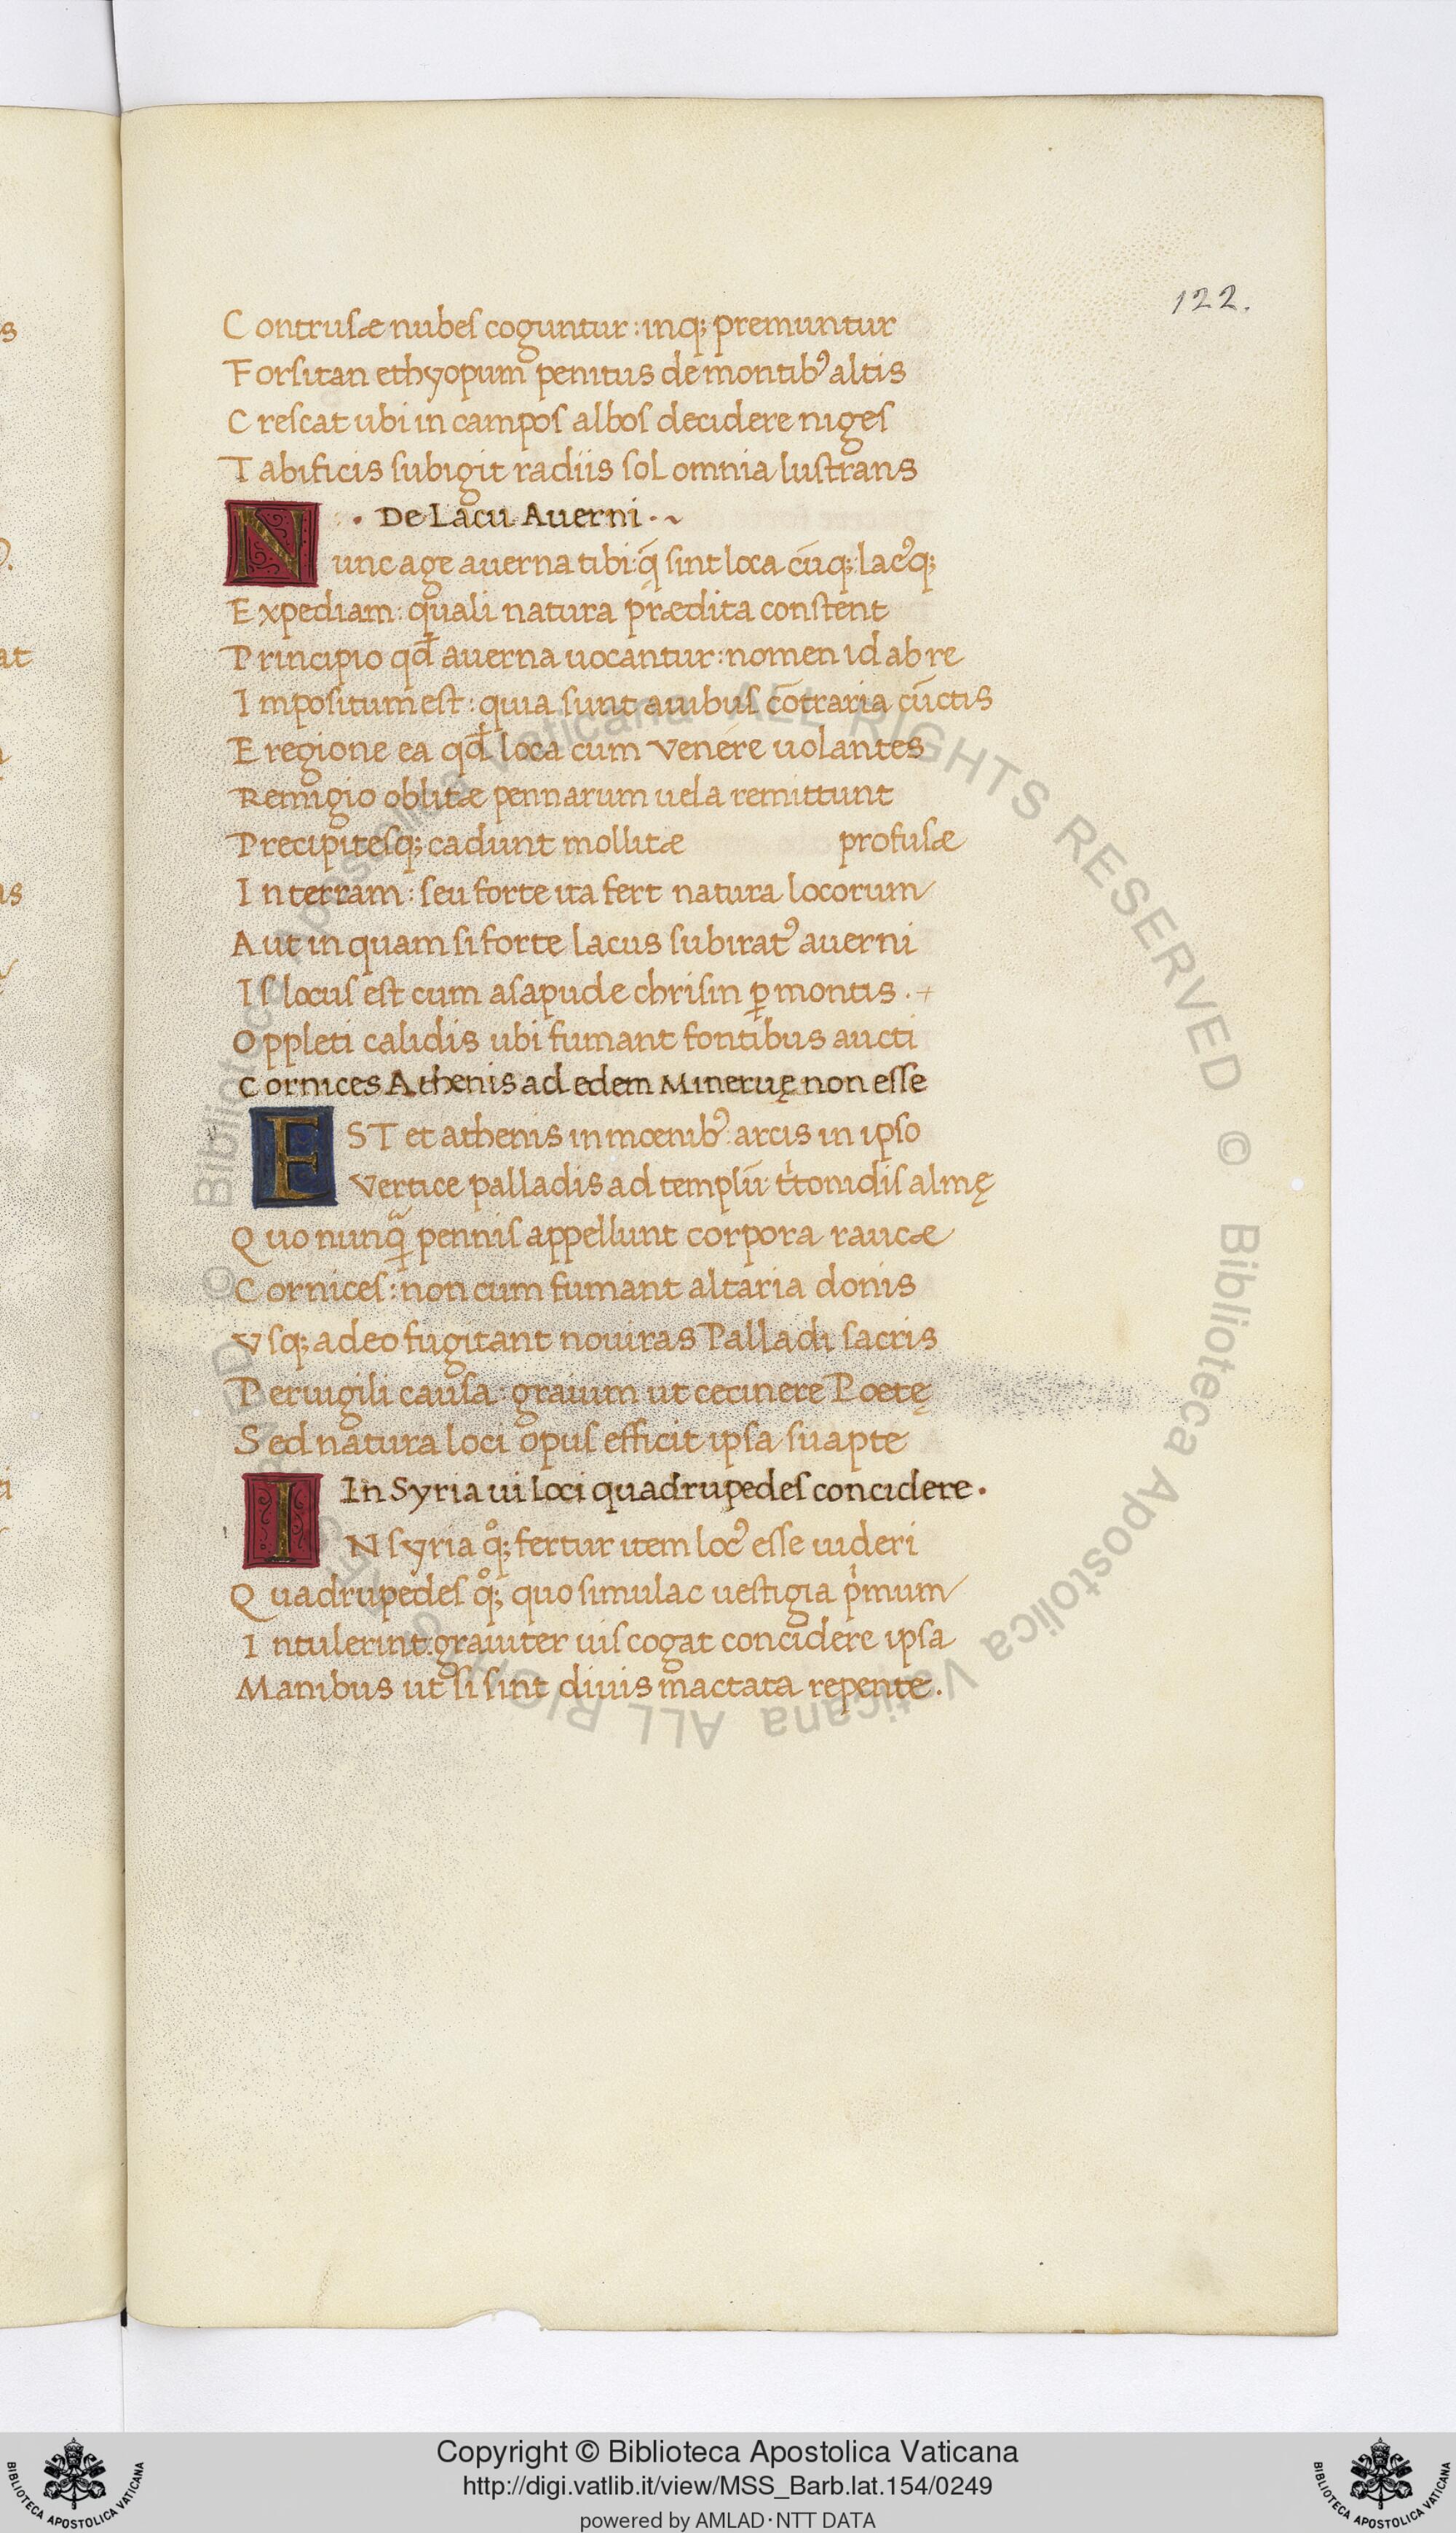 122.
Contrusæ nubes coguntur: inq; premuntur
Forsitan ethyopum penitus de montibꝰ altis
Crescat ubi in campos albos decidere niges
Tabificis subigit radiis sol omnia lustrans
· De Lacu Auerni · ~
Nunc age auerna tibi: q̄ sint loca cūq; lacꝰq;
Expediam: quali natura prædita constent
Principio qđ auerna uocantur: nomen id ab re
Impositum est: quia sunt auibus cōtraria cūctis
E regione ea qđ loca cum venere uolantes
Remigio oblitæ pennarum uela remittunt
Precipitesq; cadunt mollitæ profusæ
In terram: seu forte ita fert natura locorum
Aut in quam si forte lacus subiratꝰ auerni
Is locus est cum asapude chrisin ꝑ montis.
Oppleti calidis ubi fumant fontibus aucti
Cornices Athenis ad edem Mineruę non esse
EST et athenis in mœnibꝰ arcis in ipso
Vertice palladis ad templū tͥtonidis almę
Quo nunq̄ pennis appellunt corpora raucæ
Cornices: non cum fumant altaria donis
Vsq; adeo fugitant no uiras Palladi sacris
Peruigili causa graium ut cecinere Poetę
Sed natura loci opus efficit ipsa suapte
In Syria ui loci quadrupedes concidere.
IN syria qͦ; fertur item locꝰ esse uideri
Quadrupedes qͦ; quo simulac uestigia pͥmum
Intulerint: grauiter uis cogat concidere ipsa
Manibus ut si sint diuis mactata repente.
© Biblioteca Apostolica Vaticana ALL RIGHTS RESERVED © Biblioteca Apostolica Vaticana ALL RIGHTS RESERVED
Copyright © Biblioteca Apostolica Vaticana
http://digi.vatlib.it/view/MSS_Barb.lat.154/0249
powered by AMLAD·NTT DATA
BIBLIOTECA APOSTOLICA VATICANA
BIBLIOTECA APOSTOLICA VATICANA